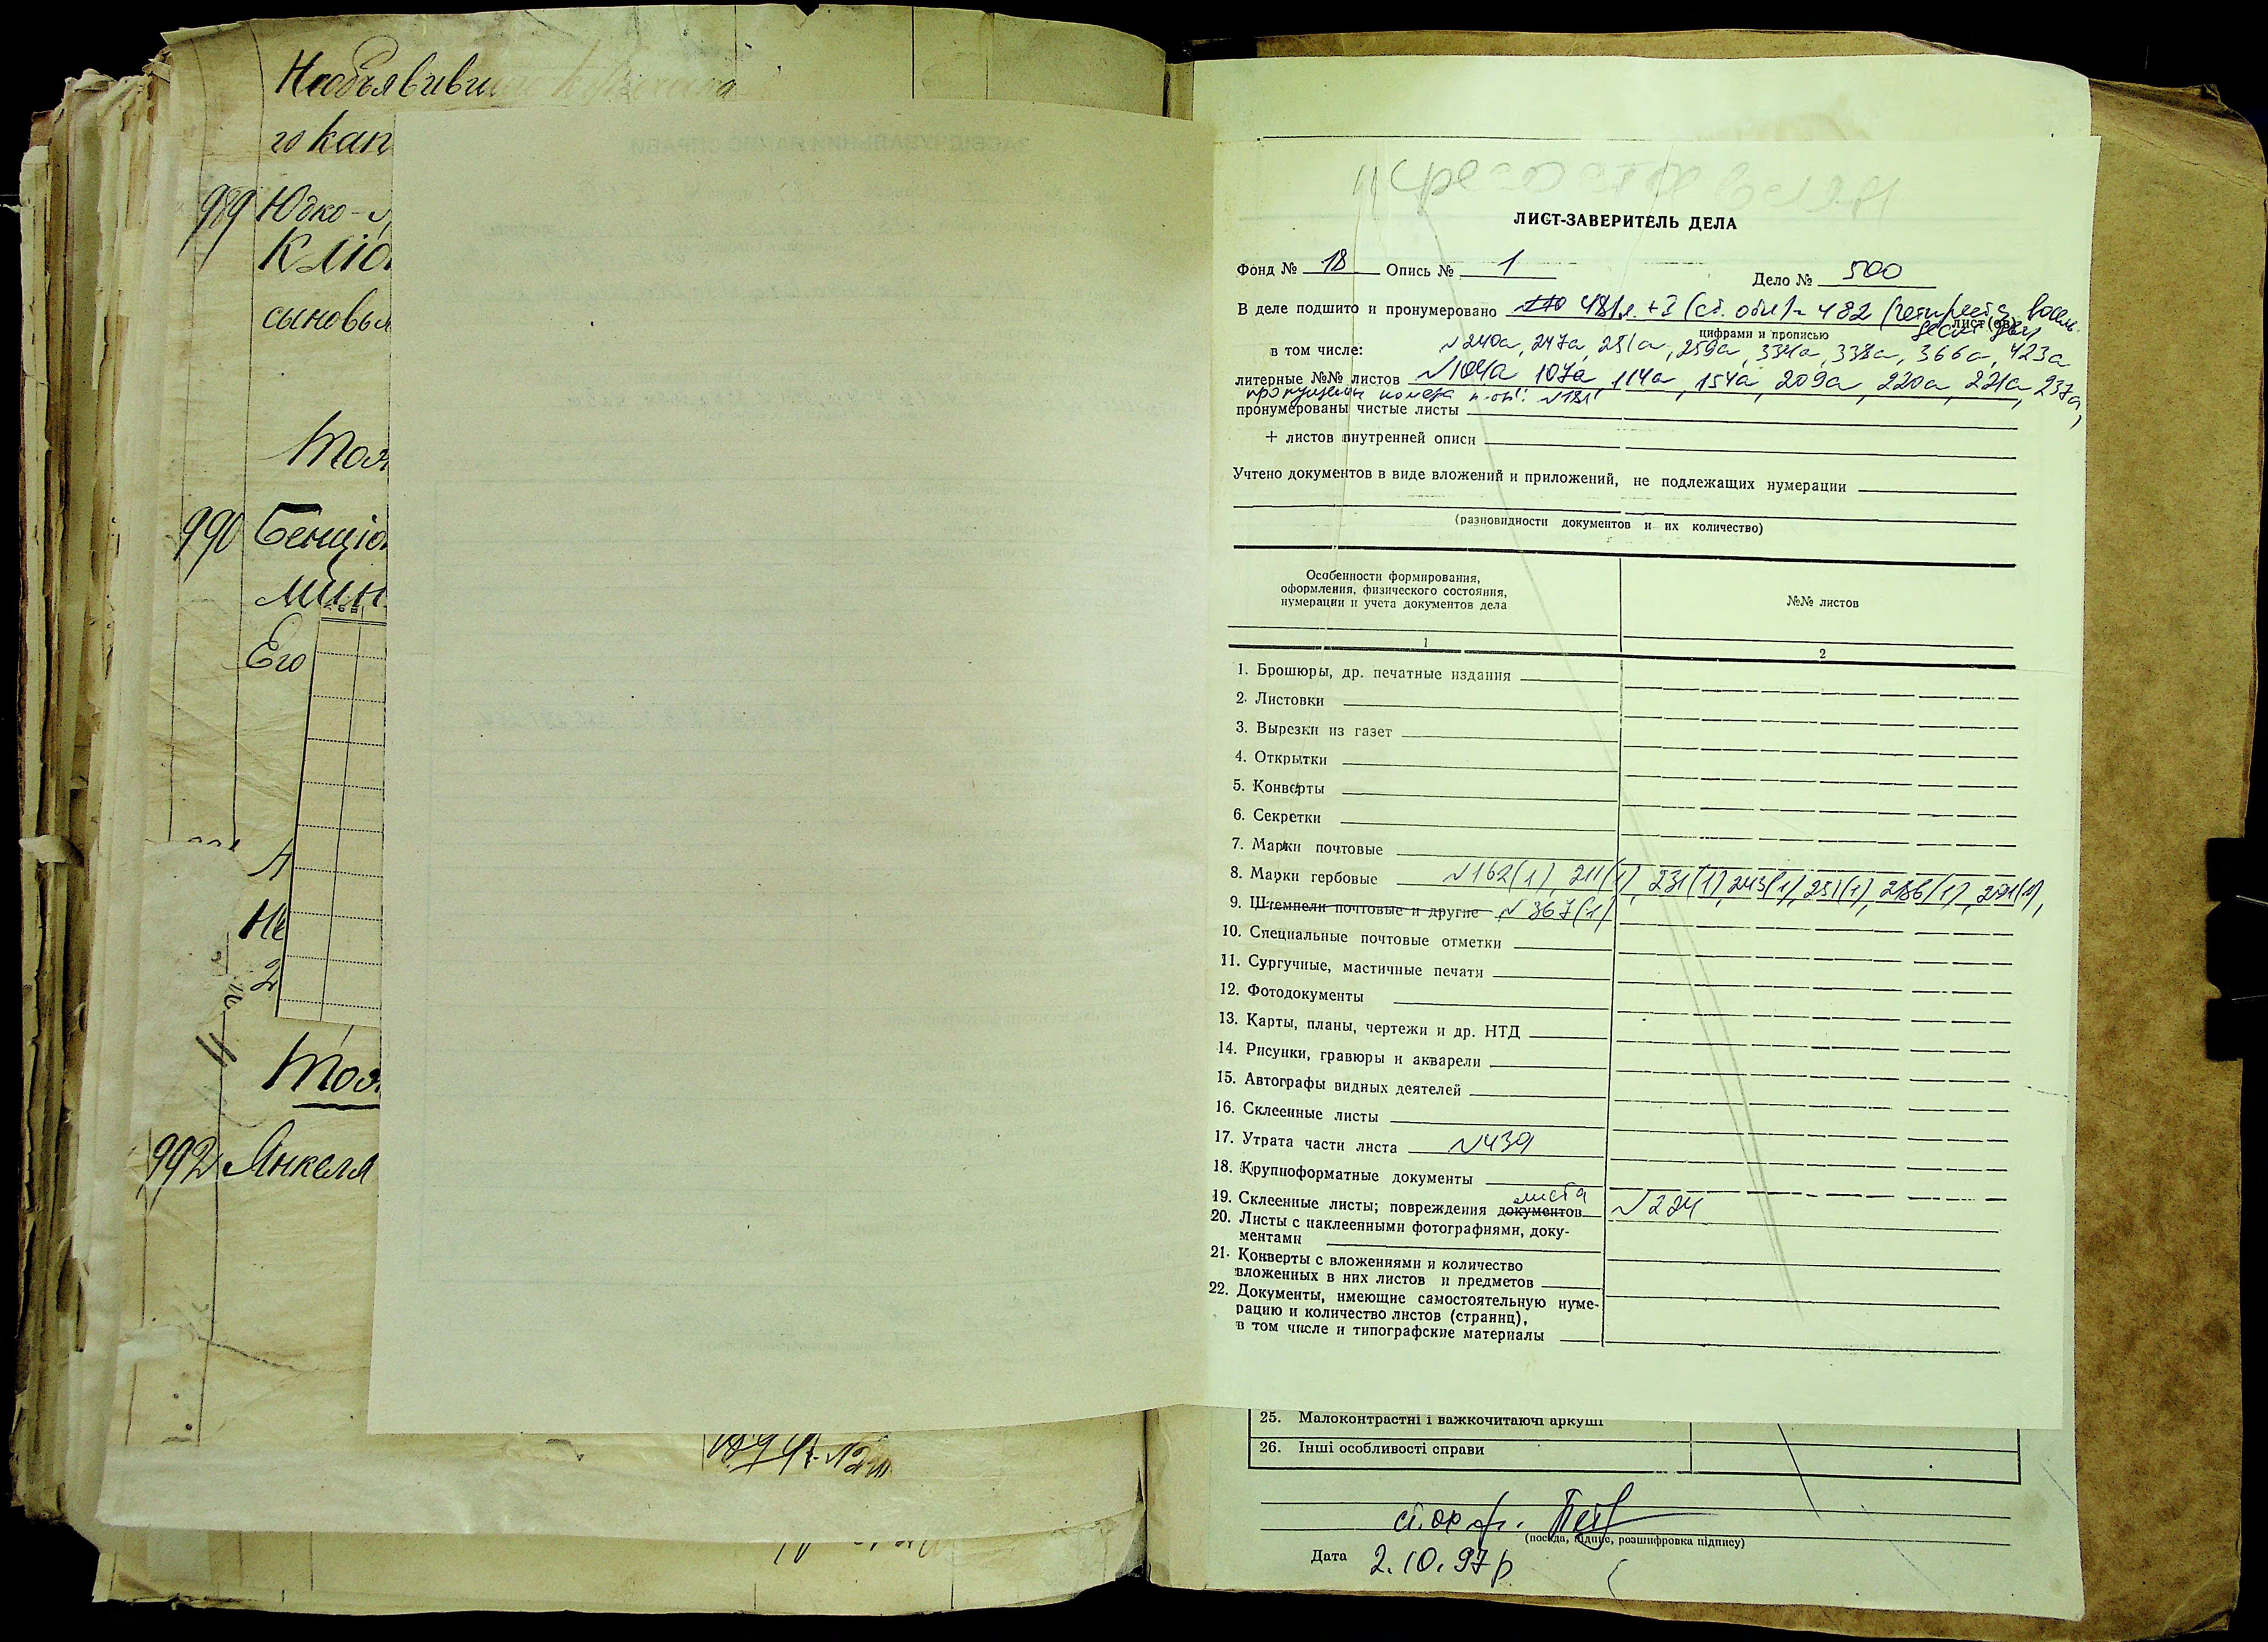 Необъявивши
го кап
989 Юдко-
сыновья
990 Бенціо
мин
Его
Не
2
992 Янкеля
ЛИСТ-ЗАВЕРИТЕЛЬ ДЕЛА
Фонд № 18 Опись № 1 Дело № 500
В деле подшито и пронумеровано 481л. + 1 (сб. обл) = 482 (четыреста восемь-
десят два лист(ов)
цифрами и прописью
в том числе: №240а, 247а, 251а, 259а, 334а, 338а, 366а, 423а
литерные №№ листов №104а 107а, 114а, 154а, 209а, 220а, 221а, 237а,
пропущены номера л-ов: №181
пронумерованы чистые листы
+ листов внутренней описи
Учтено документов в виде вложений и приложений, не подлежащих нумерации
(разновидности документов и их количество)
Особенности формирования,
оформления, физического состояния,
нумерации и учета документов дела
№№ листов
1 2
1. Брошюры, др. печатные издания
2. Листовки
3. Вырезки из газет
4. Открытки
5. Конверты
6. Секретки
7. Марки почтовые
8. Марки гербовые №162(1), 211(1), 231(1), 243(1), 251(1), 286(1), 291(1),
9. Штемпели почтовые и другие №367(1)
10. Специальные почтовые отметки
11. Сургучные, мастичные печати
12. Фотодокументы
13. Карты, планы, чертежи и др. НТД
14. Рисунки, гравюры и акварели
15. Автографы видных деятелей
16. Склеенные листы
17. Утрата части листа №439
18. Крупноформатные документы
листа
19. Склеенные листы; повреждения документов №224
20. Листы с наклеенными фотографиями, доку-
ментами
21. Конверты с вложениями и количество
вложенных в них листов и предметов
22. Документы, имеющие самостоятельную нуме-
рацию и количество листов (страниц),
в том числе и типографские материалы
25. Малоконтрастні і важкочитаючі аркуші
26. Інші особливості справи
(посада, підпис, розшифровка підпису)
Дата 2.10.97р